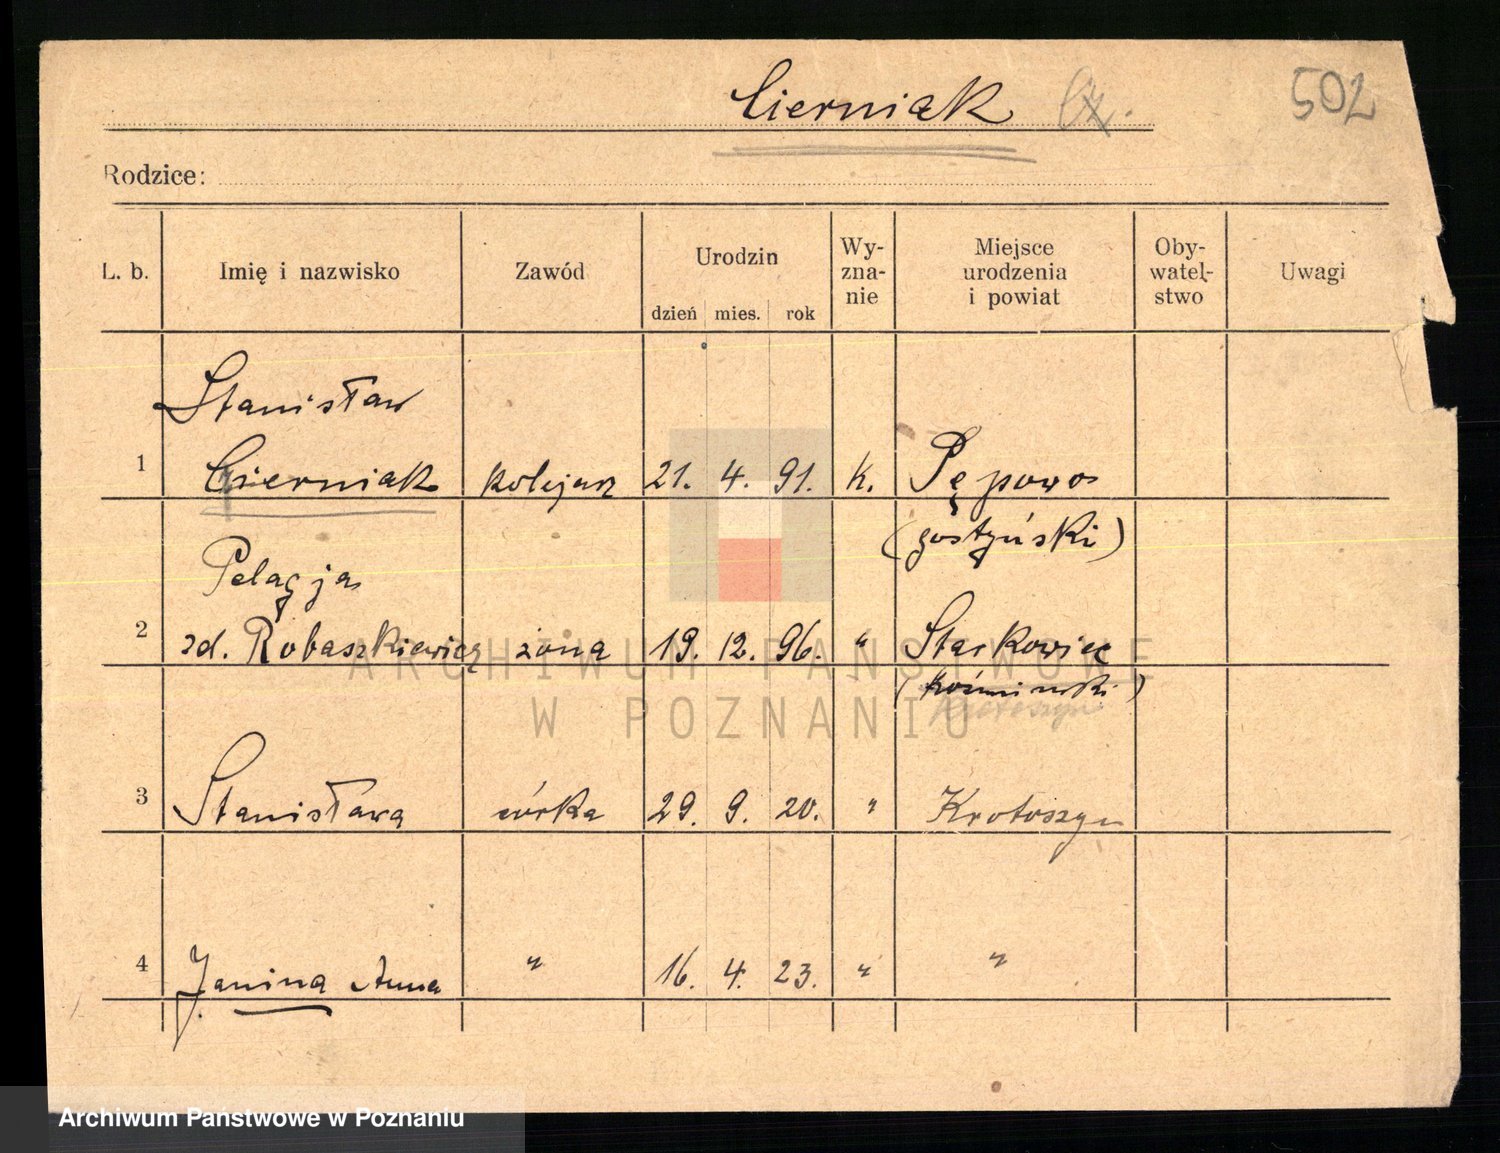 Cierniak Cz.
502
Rodzice:
L. b.
Imię i nazwisko
Zawód
Urodzin
dzień mies. rok
Wy-
zna-
nie
Miejsce
urodzenia
i powiat
Oby-
watel-
stwo
Uwagi
Stanisław
1 Cierniak kolejarz 21. 4. 91. k. Pępowo
(gostyński)
Pelagja
2 zd. Robaszkiewicz żona 19. 12. 96. " Starkowiec
(koźmiński)
Krotoszyn
3 Stanisława córka 29. 9. 20. " Krotoszyn
4 Janina Anna " 16. 4. 23. " "
ARCHIWUM PAŃSTWOWE
W POZNANIU
Archiwum Państwowe w Poznaniu